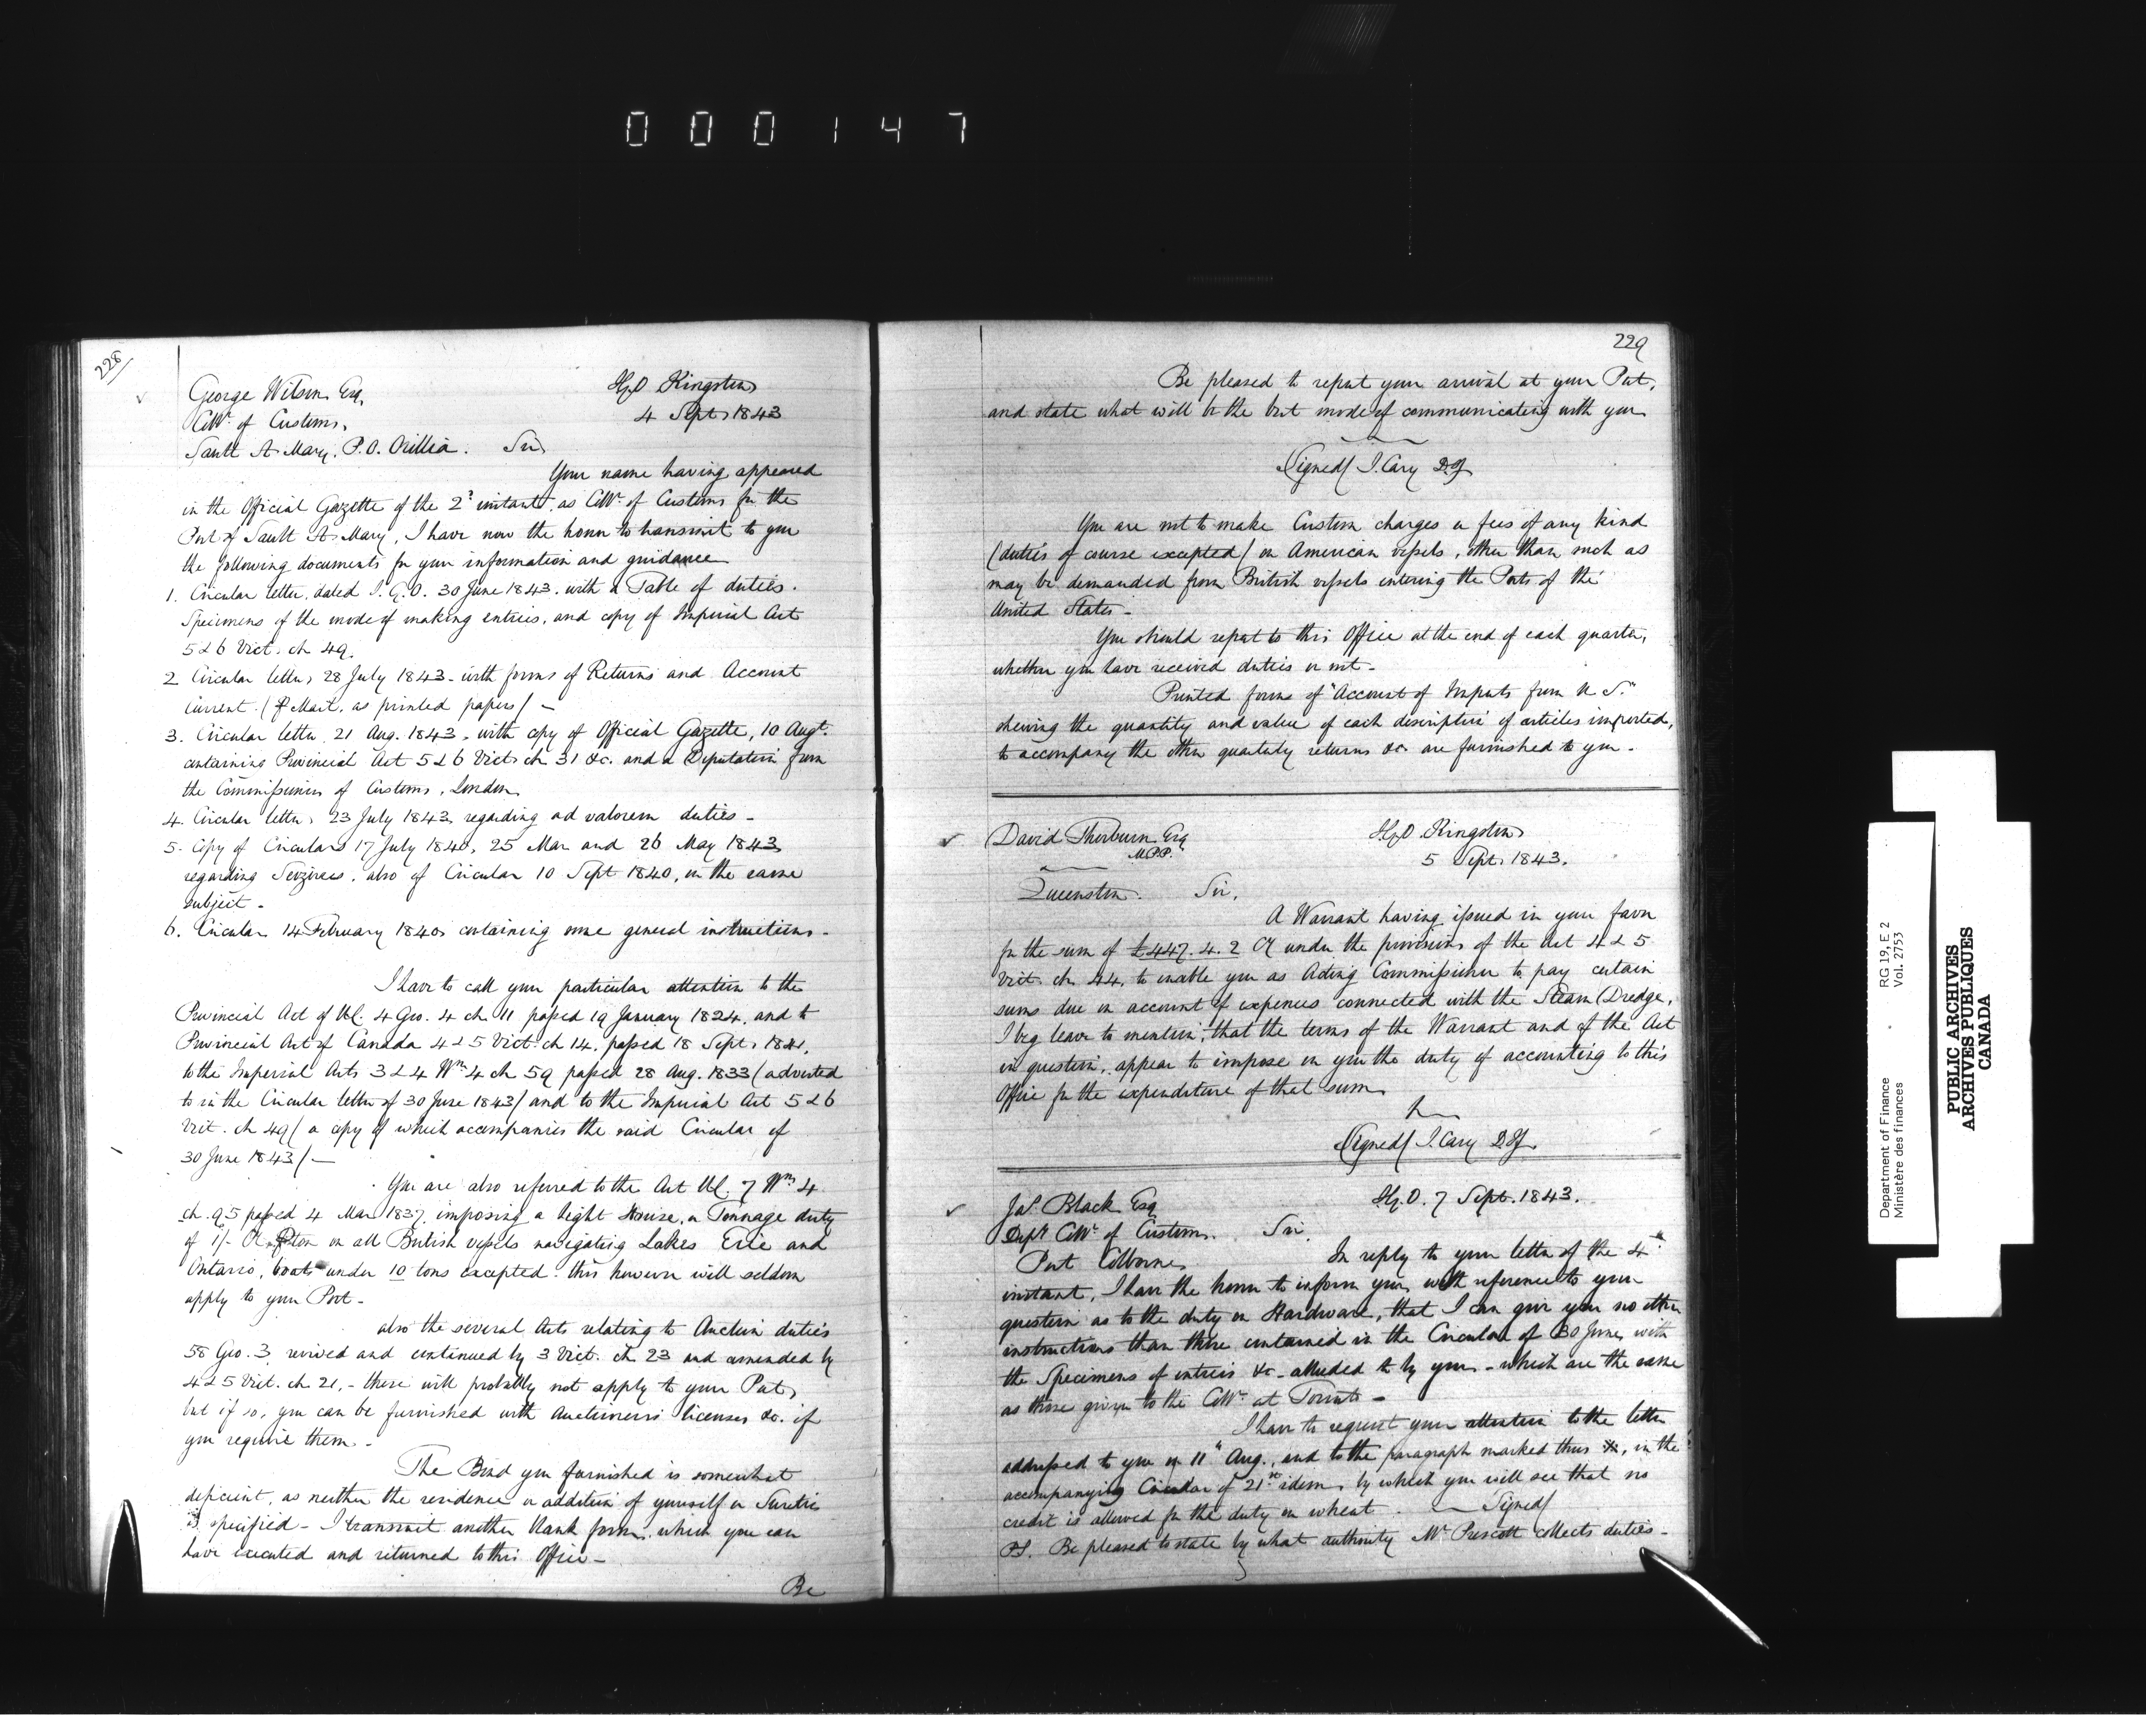 000147
228/
George Wilson Esq.
Collr. of Customs,
Sault St Mary, P.O. Orillia. Sir
I.G.O Kingston
4 Sept. 1843
Your name having appeared
in the Official Gazette of the 2d instant, as Collr. of Customs for the
Port of Sault St Mary, I have now the honor to transmit to you
the following documents for your information and guidance
1. Circular letter, dated I.G.O. 30 June 1843. with a Table of duties.
Specimens of the mode of making entries, and copy of Imperial Act
5 & 6 Vict. ch 49.
2 Circular letter, 28 July 1843 - with forms of Returns and Account
Current. (p Mail, as printed papers) -
3. Circular letter 21 Aug. 1843, with copy of Official Gazette, 10 Augt.
containing Provincial Act 5 & 6 Vict. ch 31 &c. and a Deputation from
the Commissioners of Customs, London
4. Circular letter, 23 July 1843 regarding ad valorem duties -
5. Copy of Circulars 17 July 1840, 25 Mar and 26 May 1843
regarding Seizures, also of Circular 10 Sept 1840, on the same
subject -
6. Circular 14 February 1840 containing some general instructions -
I have to call your particular attention to the
Provincial Act of U.C. 4 Geo. 4 ch 11 passed 19 January 1824, and to
Provincial Act of Canada 4 & 5 Vict. ch 14. passed 18 Sept. 1841,
to the Imperial Acts 3 & 4 Wm 4 ch 59 passed 28 Aug. 1833 (adverted
to in the Circular letter of 30 June 1843) and to the Imperial Act 5 & 6
Vict. ch 49 (a copy of which accompanies the said Circular of
30 June 1843) -
You are also referred to the Act U.C. 7 Wm 4
ch. 95 passed 4 Mar 1837, imposing a Light House, or Tonnage duty
of 1/- Cy p ton on all British vessels navigating Lakes Erie and
Ontario, boats under 10 tons excepted - this however will seldom
apply to your Port -
also the several Acts relating to Auction duties
58 Geo. 3 revived and continued by 3 Vict. ch 23 and amended by
4 & 5 Vict. ch 21, - these will probably not apply to your Port,
but if so, you can be furnished with Auctioneers licenses &c. if
you require them -
The Bond you furnished is somewhat
deficient, as neither the residence or addition of yourself or Sureties
is specified - I transmit another blank form, which you can
have executed and returned to this Office -
Be
229
Be pleased to report your arrival at your Port,
and state what will be the best mode of communicating with you
Signed/ J. Cary D.I.G.
You are not to make Custom charges or fees of any kind
(duties of course excepted) on American vessels, other than such as
may be demanded from British vessels entering the Ports of the
United States -
You should report to this Office at the end of each quarter,
whether you have received duties or not -
Printed forms of "Account of Imports from U.S."
shewing the quantity and value of each description of articles imported,
to accompany the other quarterly returns &c. are furnished to you -
David Thorburn Esq
M.P.P.
Queenston. Sir,
I.G.O. Kingston
5 Sept. 1843.
A Warrant having issued in your favor
for the sum of £447. 4. 2 Cy under the provisions of the Act 4 & 5
Vict. ch 44, to enable you as Acting Commissioner to pay certain
sums due on account of expences connected with the Steam Dredge,
I beg leave to mention, that the terms of the Warrant and of the Act
in question, appear to impose on you the duty of accounting to this
Office for the expenditure of that sum.
Signed/ J. Cary D.I.G.
Jas. Black Esq
Depy Collr. of Customs.
Port Colborne
Sir
I.G.O. 7 Sept. 1843.
In reply to your letter of the 4th
instant, I have the honor to inform you, with reference to your
question as to the duty on Hardware, that I can give you no other
instructions than those contained in the Circular of 30 June, with
the Specimens of entries &c - alluded to by you - which are the same
as those given to the Collr. at Toronto -
I have to request your attention to the letter
addressed to you on 11th Aug., and to the paragraph marked thus X, in the
accompanying Circular of 21st idem, by which you will see that no
credit is allowed for the duty on wheat. - Signed/
P.S. Be pleased to state by what authority Mr. Prescott collects duties -
Department of Finance RG 19, E 2
Ministère des finances Vol. 2753
PUBLIC ARCHIVES
ARCHIVES PUBLIQUES
CANADA